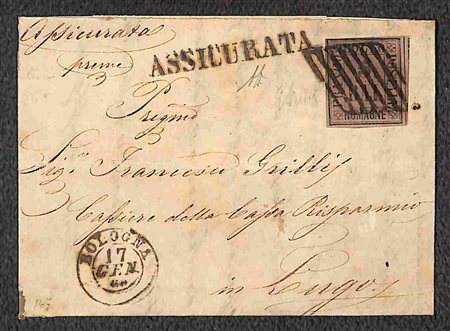 Assicurata
ASSICURATA
preme
Pregmo
ROMAGNE
Sigr. Francesco Grilli
Cassiere della Cassa Risparmio
BOLOGNA
17
GEN.
60
in Lugo